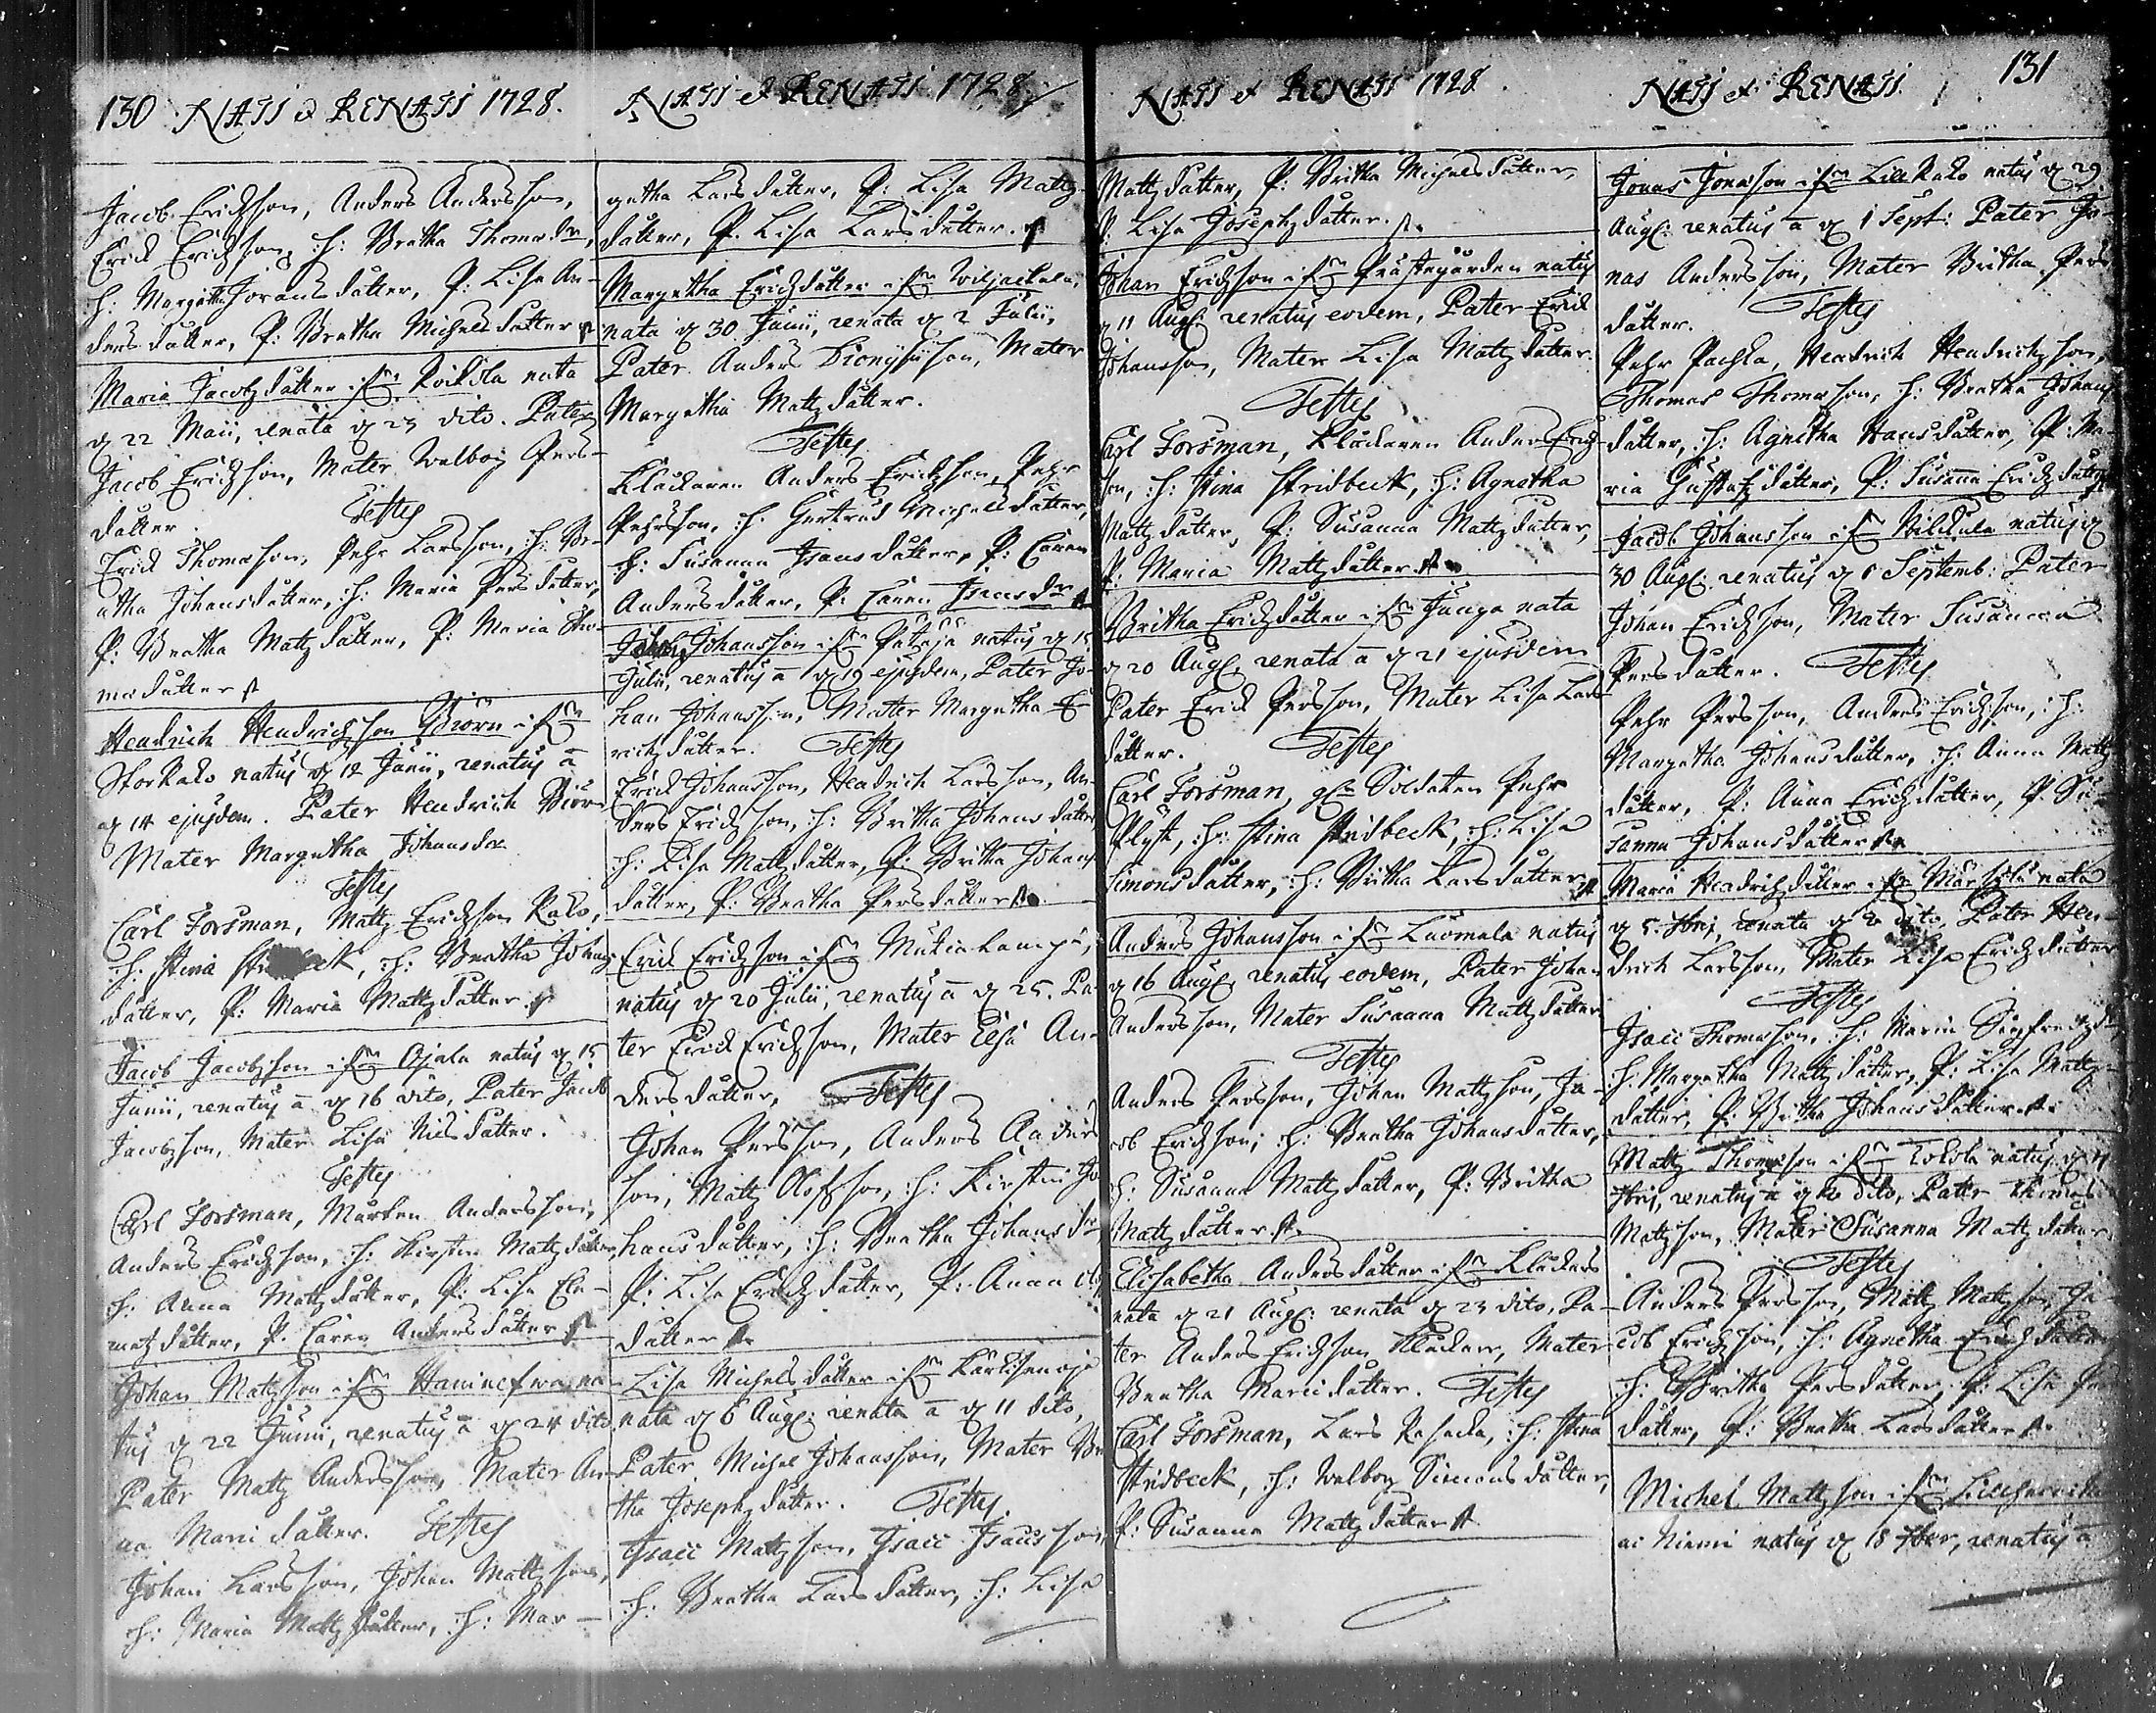 130 NATI & RENATI 1728.
Jacob Erichson, Anders Andersson,
Erich Erichson, :h: Breatha Thomædr,
h: Margetha Joransdatter, P: Lisa An-
dersdatter, P: Breatha Michelsdatter
Maria Jacobzdatter ifrn Koikola nata
d 22 Maii, renata d 23 dito. Pater
Jacob Erichson, Mater Walborg Pers-
datter. Testes
Erich Thomæson, Pehr Larsson, :h: Br-
eatha Johansdatter, :h: Maria Persdatter,
P: Breatha Mattzdatter, P: Maria Tho-
mædatter
Hendrich Hendrichson Biörn ifrn
Storkako natus d 12 Junii, renatus a
d 14 ejusdem. Pater Hendrich Biörn
Mater Margetha Johansdr
Testes
Carl Forsman, Mattz Erichson Kako,
:h: Stina, :h: Breatha Johans
datter, P: Maria Mattzdatter
Jacob Jacobzson ifrn Ojala natus d 15
Junii, renatus a d 16 dito, Pater Jacob
Jacobzson, Mater Lisa Nilsdatter.
Testes
Carl Forsman, Mårten Andersson,
Anders Erichson, :h: Kirstin Mattzdatter
h: Anna Mattzdatter, P: Lisa Cle-
metzdatter, P. Caren Andersdatter
Johan Mattzson ifrn na-
tus d 22 Junii, renatus a d 24 dito
Pater Mattz Andersson, Mater An-
na Marcidatter. Testes
Johan Larsson, Johan Mattzson,
h: Maria Mattzdatter, :h: Mar-
NATI & RENATI 1728.
getha Larsdatter, P: Lisa Mattz-
datter, P. Lisa Larsdatter.
Margetha Erichdatter ifrn Wiljackala,
nata d 30 Junii, renata d 2 Julii,
Pater Anders Dionysiison, Mater
Margetha Mattzdatter.
Testes
Klockaren Anders Erichson, Pehr
Pehrsson, :h. Gertrud Michelsdatter,
h: Susanna Isacsdatter, P: Caren
Andersdatter, P: Caren Isacsdr
Johan Johansson ifrn natus d 15
Julii, renatus a d 19 ejusdem, Pater Jo-
han Johansson, Mater Margetha E-
richzdatter. Testes
Erich Johansson, Hendrich Larsson, An-
ders Erichson, :h: Britha Johansdatter
:h: Lisa Mattzdatter, P: Britha Johans
datter, P: Breatha Persdatter
Erich Erichson ifrn
natus d 20 Julii, renatus a d 25. Pa-
ter Erich Erichson, Mater Elsa An-
dersdatter, Testes
Johan Persson, Anders Anders
son, Mattz Olofson, :h: Kirstin Jo-
hansdatter, :h: Breatha Johansdr
P: Lisa Erichzdatter, P: Anna
datter
Lisa Michelsdatter ifrn Kartisenoja
nata d 6 Aug: renata a d 11 dito,
Pater Michel Johansson, Mater Br
tha Josephzdatter. Testes
Isacc Mattzson, Isacc Isacsson,
:h: Breatha Larsdatter, :h: Lisa
NATI & RENATI 1728
Mattzdatter, P: Britha Michelsdatter,
P: Lisa Josephzdatter.
Johan Erichson ifrn Prästegården natus
d 11 Aug: renatus eodem, Pater Erich
Johansson, Mater Lisa Mattzdatter
Testes
Carl Forsman, Klockaren Anders Erich
son, :h: Stina Stridbeck, h: Agnetha
Mattzdatter, P: Susanna Mattzdatter,
P: Maria Mattzdatter
Britha Erichdatter ifrn Junga nata
d 20 Aug: renata a d 21 ejusdem
Pater Erich Persson, Mater Lisa Lars
datter. Testes
Carl Forsman, Soldaten Pehr
Plyst, :h: Stina Stridbeck, :h: Lisa
Simonsdatter, :h: Britha Larsdatter
Anders Johansson ifrn Luomala natus
d 16 Aug: renatus eodem, Pater Johan
Andersson, Mater Susanna Mattzdatter
Testes
Anders Persson, Johan Mattzson, Ja-
cob Erichson; :h: Breatha Johansdatter,
h: Susanna Mattzdatter, P: Britha
Mattzdatter
Elisabetha Andersdatter ifrn Klockars
nata d 21 Aug: renata d 23 dito, Pa-
ter Anders Erichson Klockar, Mater
Breatha Marcidatter. Testes
Carl Forsman, Lars, :h: Stina
Stridbeck, :h: Walborg Simonsdatter,
P: Susanna Mattzdatter
NATI & RENATI 131
Jonas Jonæson ifrn Lillkako natus d 29
Aug: renatus a d 1 Sept: Pater Jo-
nas Andersson, Mater Britha Pers
datter. Testes
Pehr, Hendrich Hendrichson,
Thomas Thomæson, h: Breatha Johans
datter, :h: Agnetha Hansdatter, P: Ma-
ria Gustafzdatter, P: Susanna Erichzdatter
Jacob Johansson ifrn natus d
30 Aug: renatus d 1 Septemb: Pater
Johan Erichson, Mater Susanna
Persdatter. Testes
Pehr Persson, Anders Erichson, :h:
Margetha Johansdatter, :h: Anna Mattz
datter, P: Anna Erichzdatter, P. Su-
sanna Johansdatter
Maria Hendrichdatter ifrn nata
d 5. 7bris, renata d 8 dito, Pater Hen-
drich Larsson, Mater Lisa Erichdatter
Testes
Isacc Thomæson, :h: Maria Sigfredzdr
:h: Margetha Mattzdatter, P: Lisa Mattz-
datter, P: Britha Johansdatter
Mattz Thomæson ifrn natus d
7bris, renatus a d dito, Pater Thomas
Mattzson, Mater Susanna Mattzdatter
Testes
Anders Persson, Mattz Mattzson, Ja-
cob Erichson, :h: Agnetha Erichdatter
:h: Britha Persdatter, P: Lisa
datter, P: Breatha Larsdatter
Michel Mattzson ifrn
Niemi natus d 18 7ber, renatus a